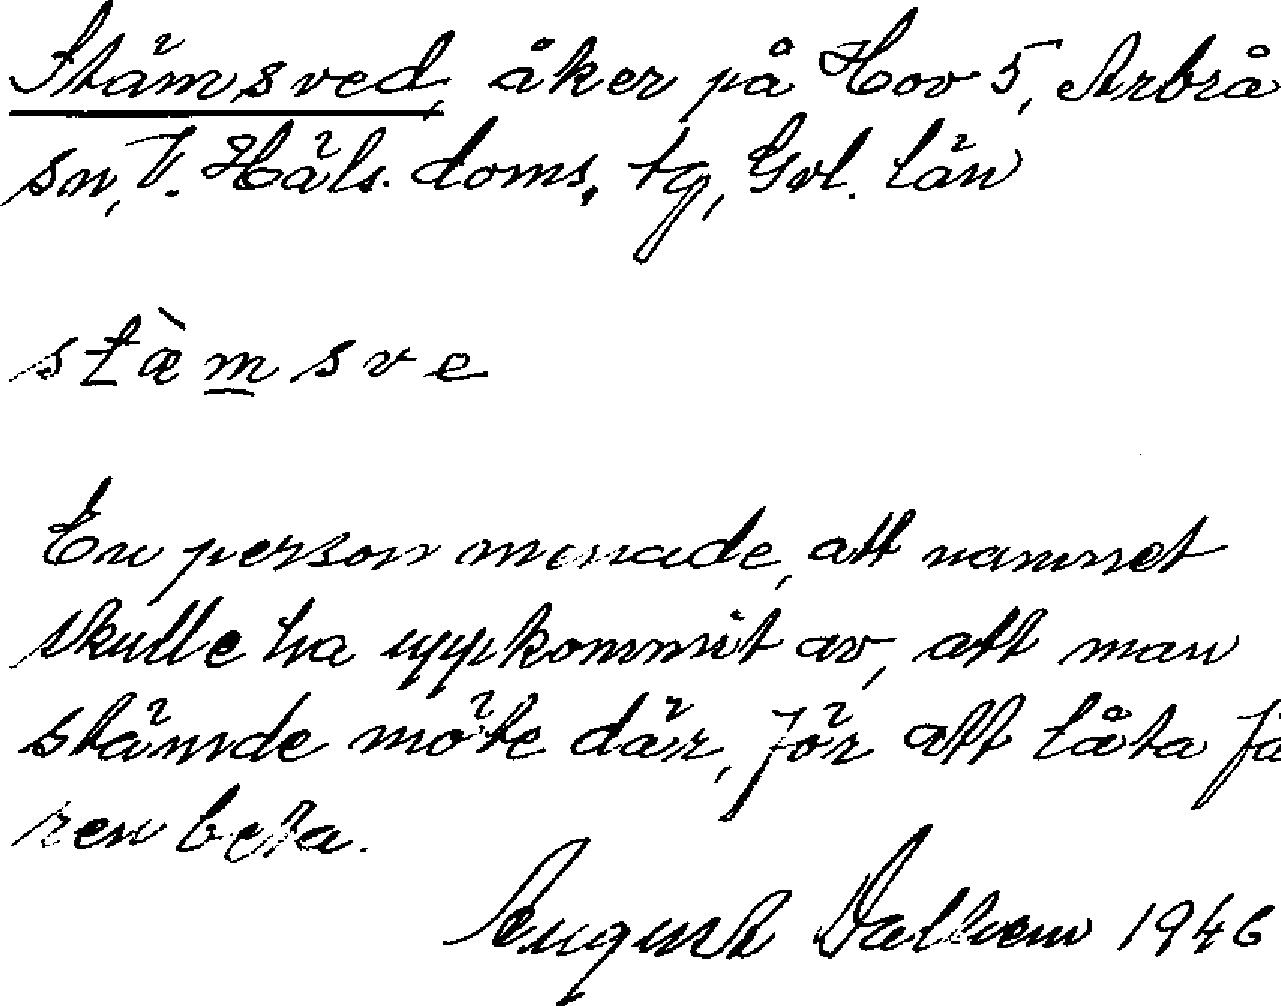 Stämsved, åker på Hov 5, Arbrå
sn, V. Häls. doms. tg, Gvl. län
stæ̀msve
En person menade, att namnet
skulle ha uppkommit av, att man
stämde möte där, för att låta få
ren beta.
August Dalhem 1946